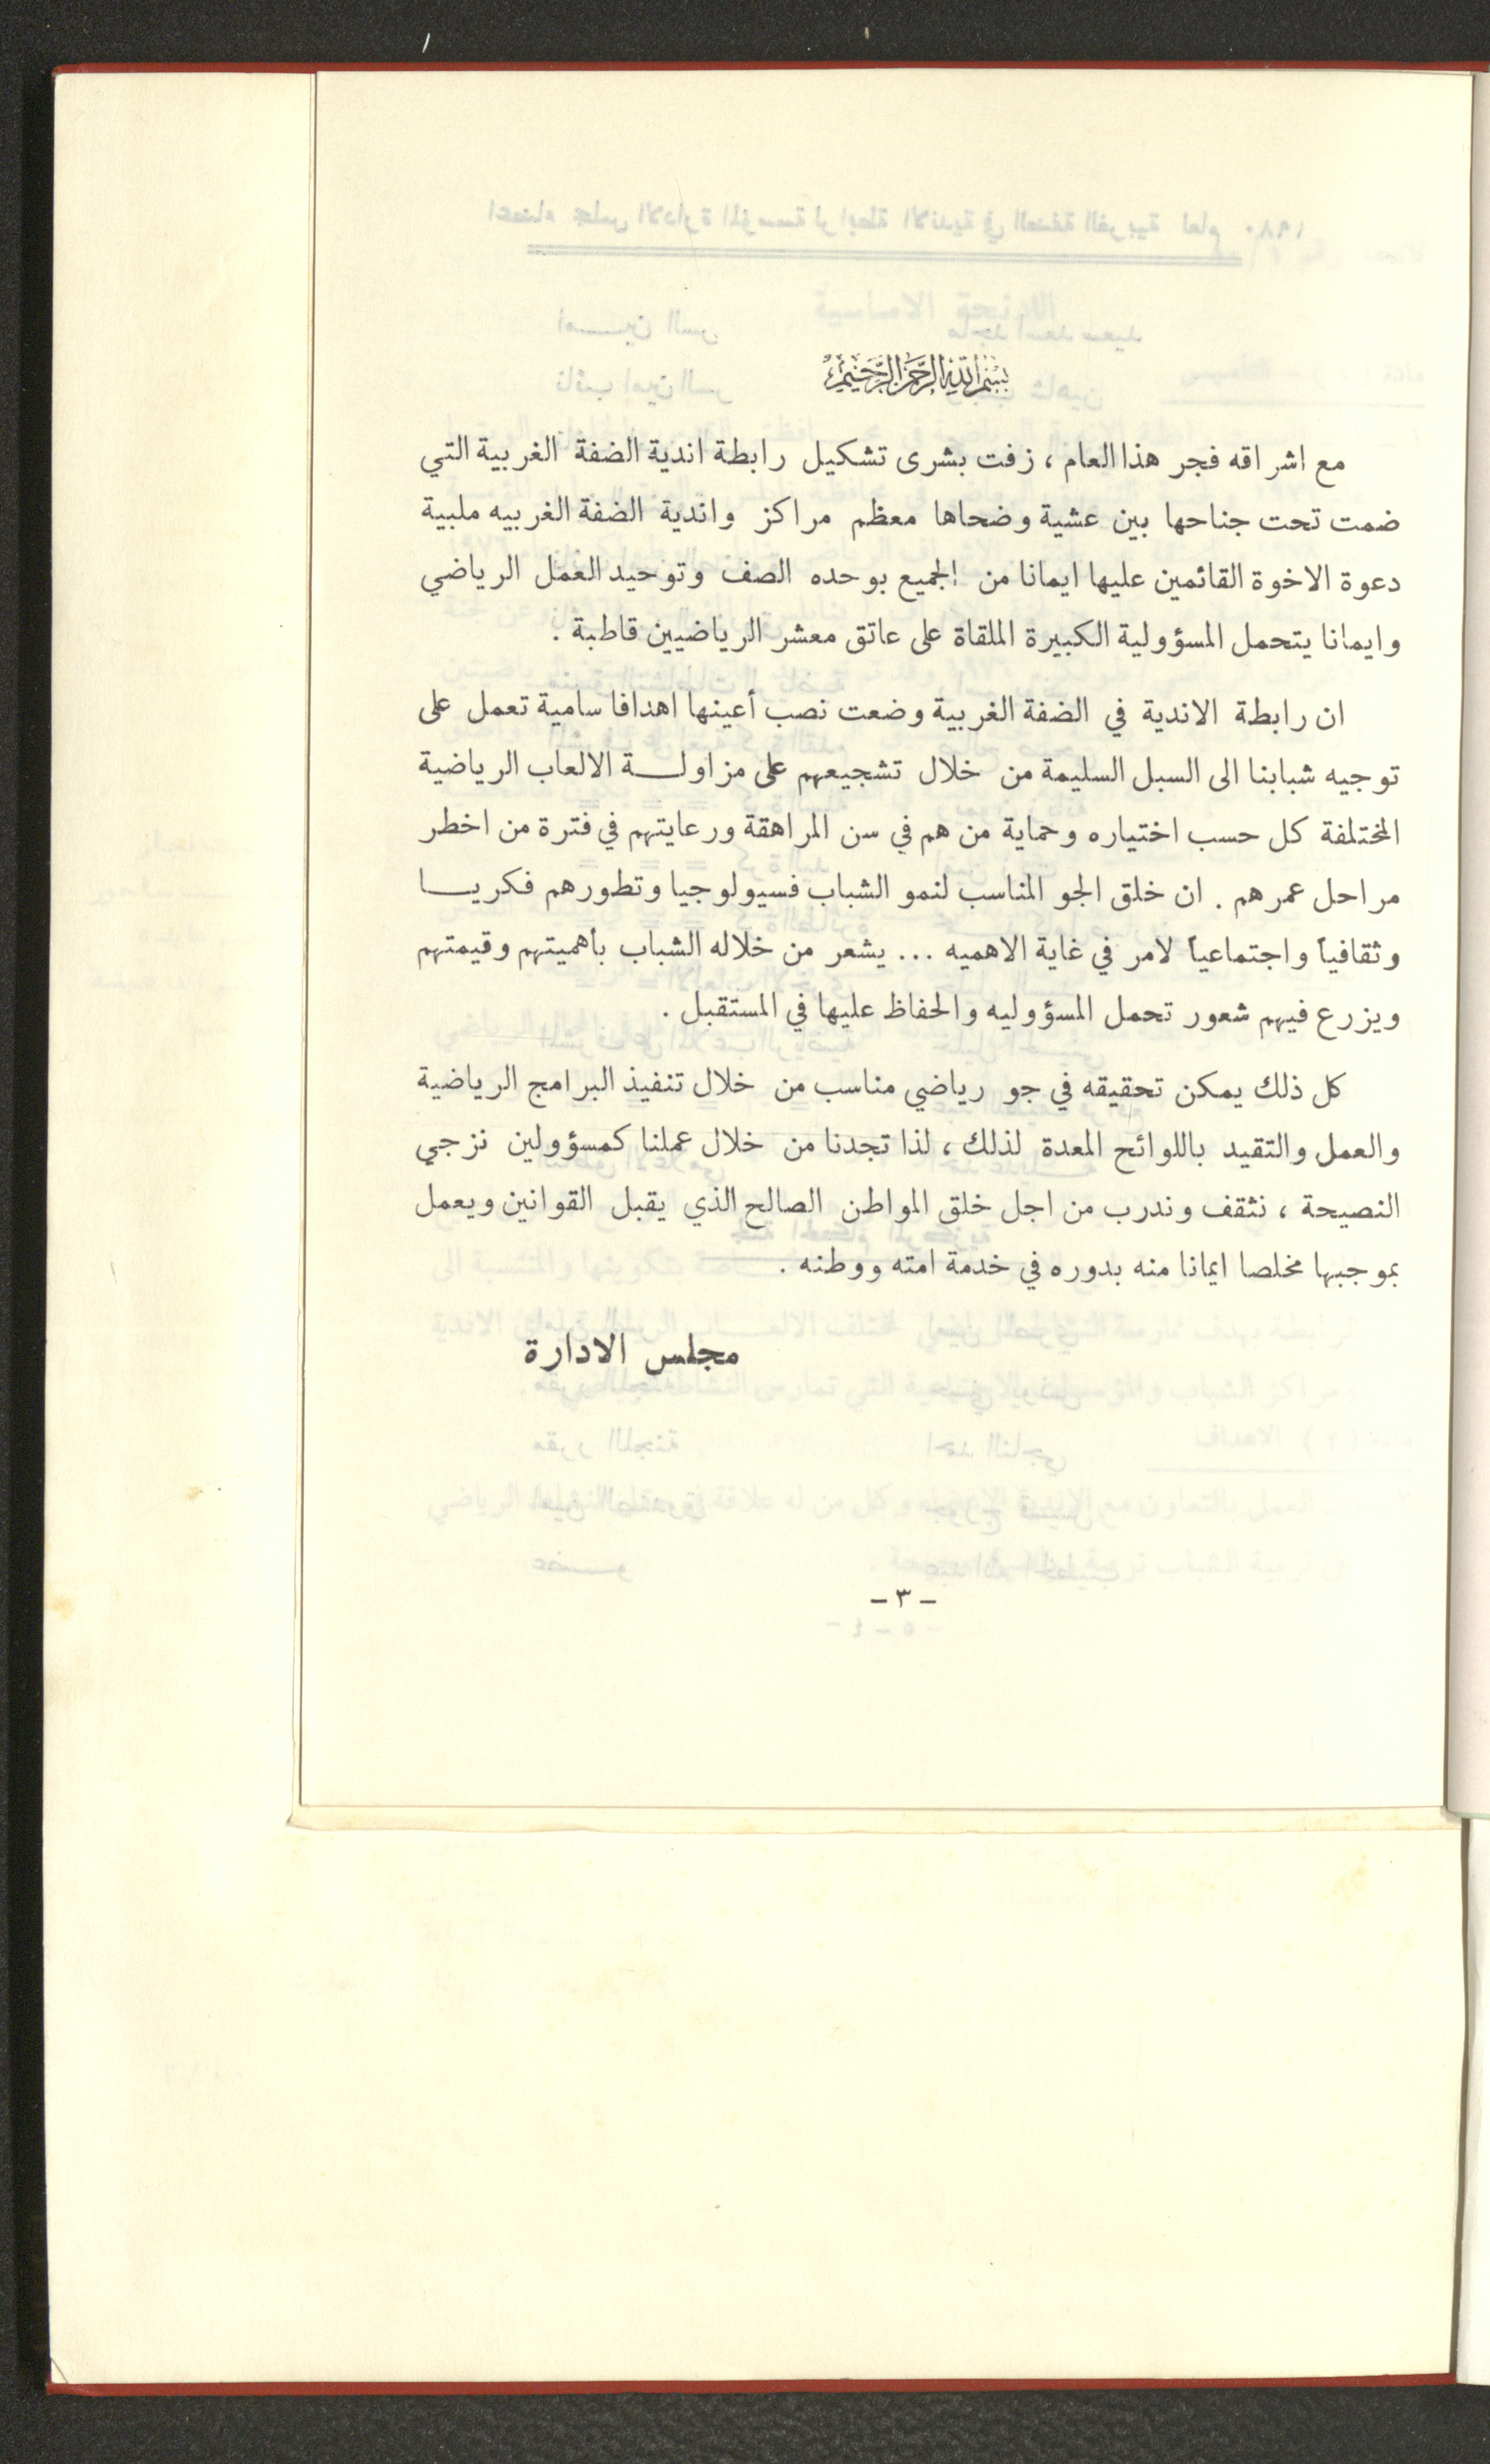 بسم الله الرحمن الرحيم
مع اشراقه فجر هذا العام ، زفت بشرى تشكيل رابطة اندية الضفة الغربية التي
ضمت تحت جناحها بين عشية وضحاها معظم مراكز واندية الضفة الغربيه ملبية
دعوة الاخوة القائمين عليها ايمانا من الجميع بوحده الصف وتوحيد العمل الرياضي
وايمانا يتحمل المسؤولية الكبيرة الملقاة على عاتق معشر الرياضيين قاطبة .
ان رابطة الاندية في الضفة الغربية وضعت نصب أعينها اهدافا سامية تعمل على
توجيه شبابنا الى السبل السليمة من خلال تشجيعهم على مزاولـــة الالعاب الرياضية
المختلفة كل حسب اختياره وحماية من هم في سن المراهقة ورعايتهم في فترة من اخطر
مراحل عمرهم . ان خلق الجو المناسب لنمو الشباب فسيولوجيا وتطورهم فكريـــا
وثقافياً واجتماعياً لامر في غاية الاهميه ... يشعر من خلاله الشباب بأهميتهم وقيمتهم
ويزرع فيهم شعور تحمل المسؤوليه والحفاظ عليها في المستقبل .
كل ذلك يمكن تحقيقه في جو رياضي مناسب من خلال تنفيذ البرامج الرياضية
والعمل والتقيد باللوائح المعدة لذلك ، لذا تجدنا من خلال عملنا كمسؤولين نزجي
النصيحة ، نثقف وندرب من اجل خلق المواطن الصالح الذي يقبل القوانين ويعمل
بموجبها مخلصا ايمانا منه بدوره في خدمة امته ووطنه .
مجلس الادارة
– ٣ –